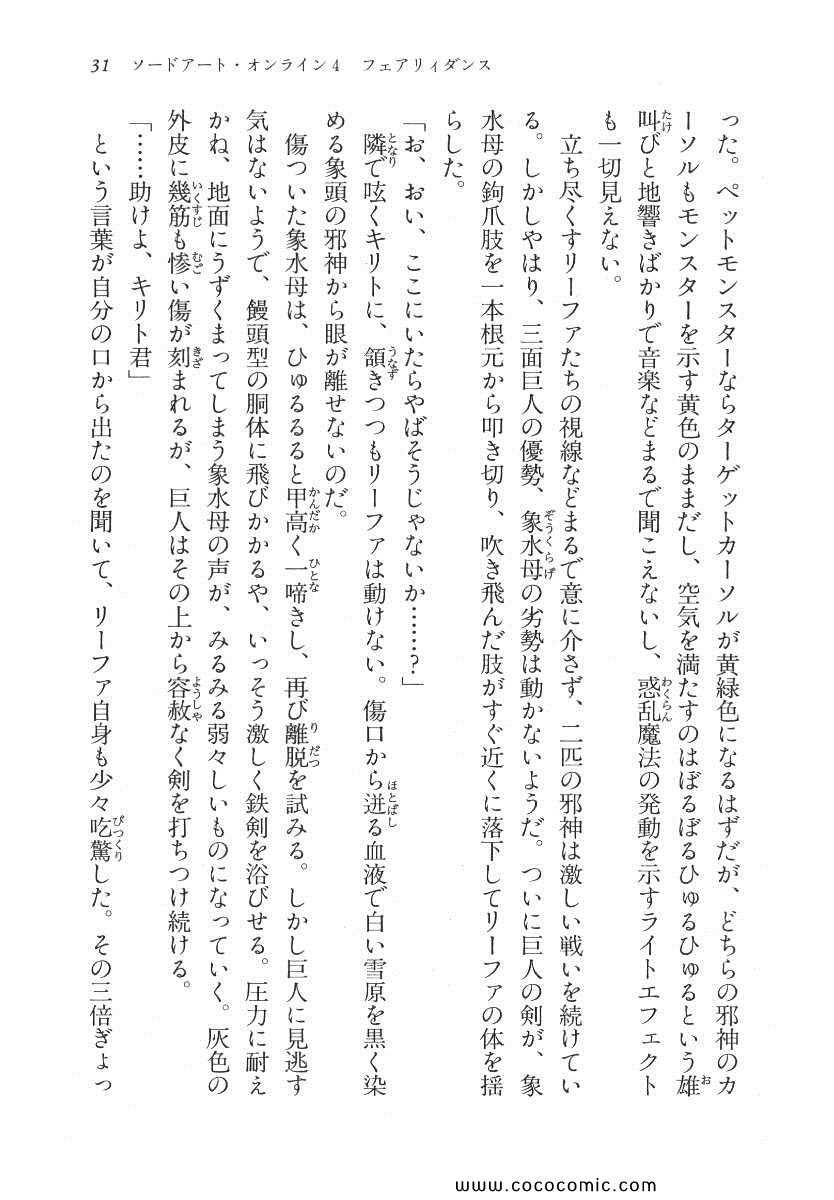 31 ソードアート・オンライン4 フェアリィダンス
った。ペットモンスターならターゲットカーソルが黄緑色になるはずだが、どちらの邪神のカ
ーソルもモンスターを示す黄色のままだし、空気を満たすのはぼるぼるひゅるひゅるという雄
叫びと地響きばかりで音楽などまるで聞こえないし、惑乱魔法の発動を示すライトエフェクト
も一切見えない。
立ち尽くすリーファたちの視線などまるで意に介さず、二匹の邪神は激しい戦いを続けてい
る。しかしやはり、三面巨人の優勢、象水母の劣勢は動かないようだ。ついに巨人の剣が、象
水母の鉤爪肢を一本根元から叩き切り、吹き飛んだ肢がすぐ近くに落下してリーファの体を揺
らした。
「お、おい、ここにいたらやばそうじゃないか……?」
隣で呟くキリトに、頷きつつもリーファは動けない。傷口から迸る血液で白い雪原を黒く染
める象頭の邪神から眼が離せないのだ。
傷ついた象水母は、ひゅるるると甲高く一啼きし、再び離脱を試みる。しかし巨人に見逃す
気はないようで、饅頭型の胴体に飛びかかるや、いっそう激しく鉄剣を浴びせる。圧力に耐え
かね、地面にうずくまってしまう象水母の声が、みるみる弱々しいものになっていく。灰色の
外皮に幾筋も惨い傷が刻まれるが、巨人はその上から容赦なく剣を打ちつけ続ける。
「……助けよ、キリト君」
という言葉が自分の口から出たのを聞いて、リーファ自身も少々吃驚した。その三倍ぎょっ
www.cococomic.com